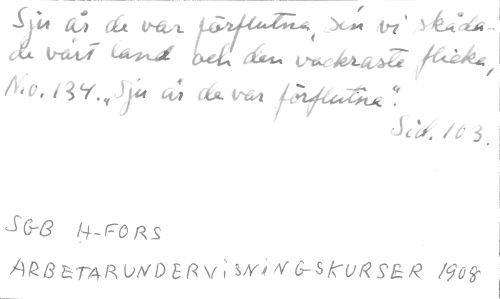 Sju år de var förflutna, se'n vi skåda-
de vårt land och den vackraste flicka,
N:o. 134. „Sju år de var förflutna".
Sid. 103.
SGB H-FORS
ARBETARUNDERVISNINGSKURSER 1908